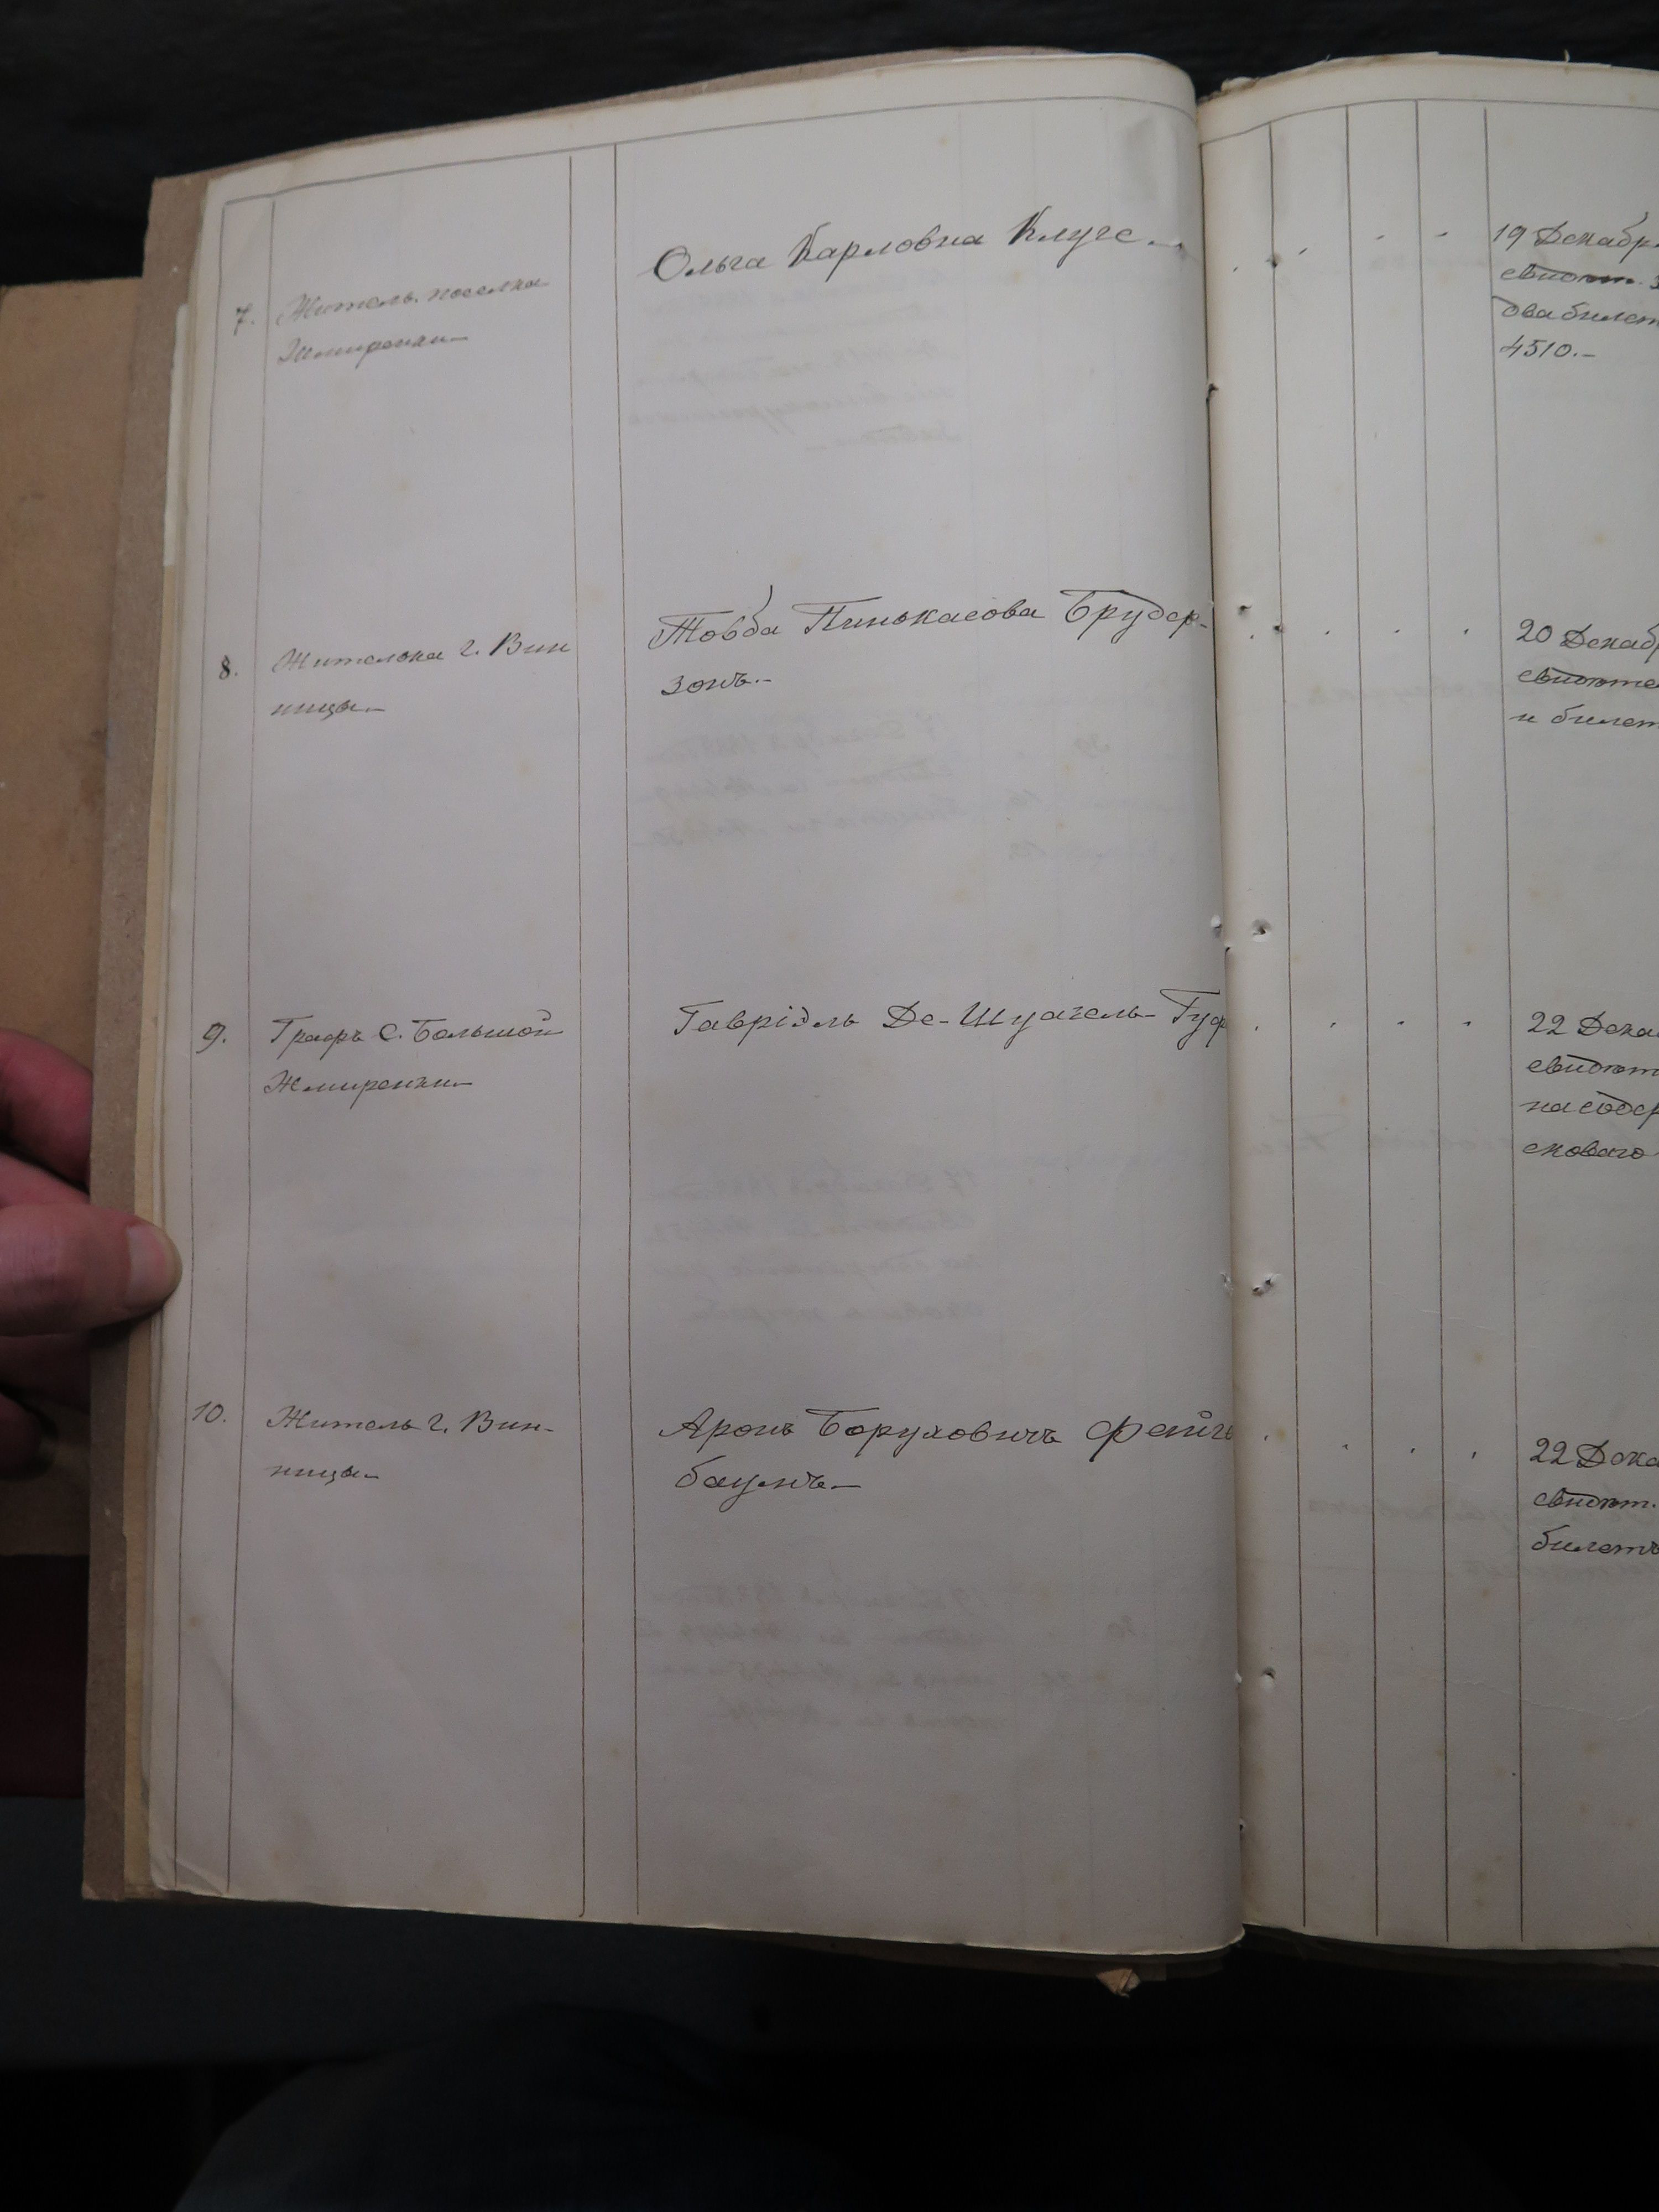 7.
Житель поселка
Жмиренки
Ольга Карловна Клуге.
19 Декабр
свидѣт.
два билет
4510.-
8.
Жителька г. Вин
ницы
Товба Пинькасова Брудер-
зонъ.-
20 Декаб
свидѣте
и билет
9.
Графъ С. Большой
Жмиренки
Гавріэль Де-Шуазель-Гуф
22 Дека
свидѣт
на содер
сковаго
10.
Житель г. Вин-
ницы
Аронъ Боруховичъ Фейге
баумъ.-
22 Дека
свидѣт.
билетъ